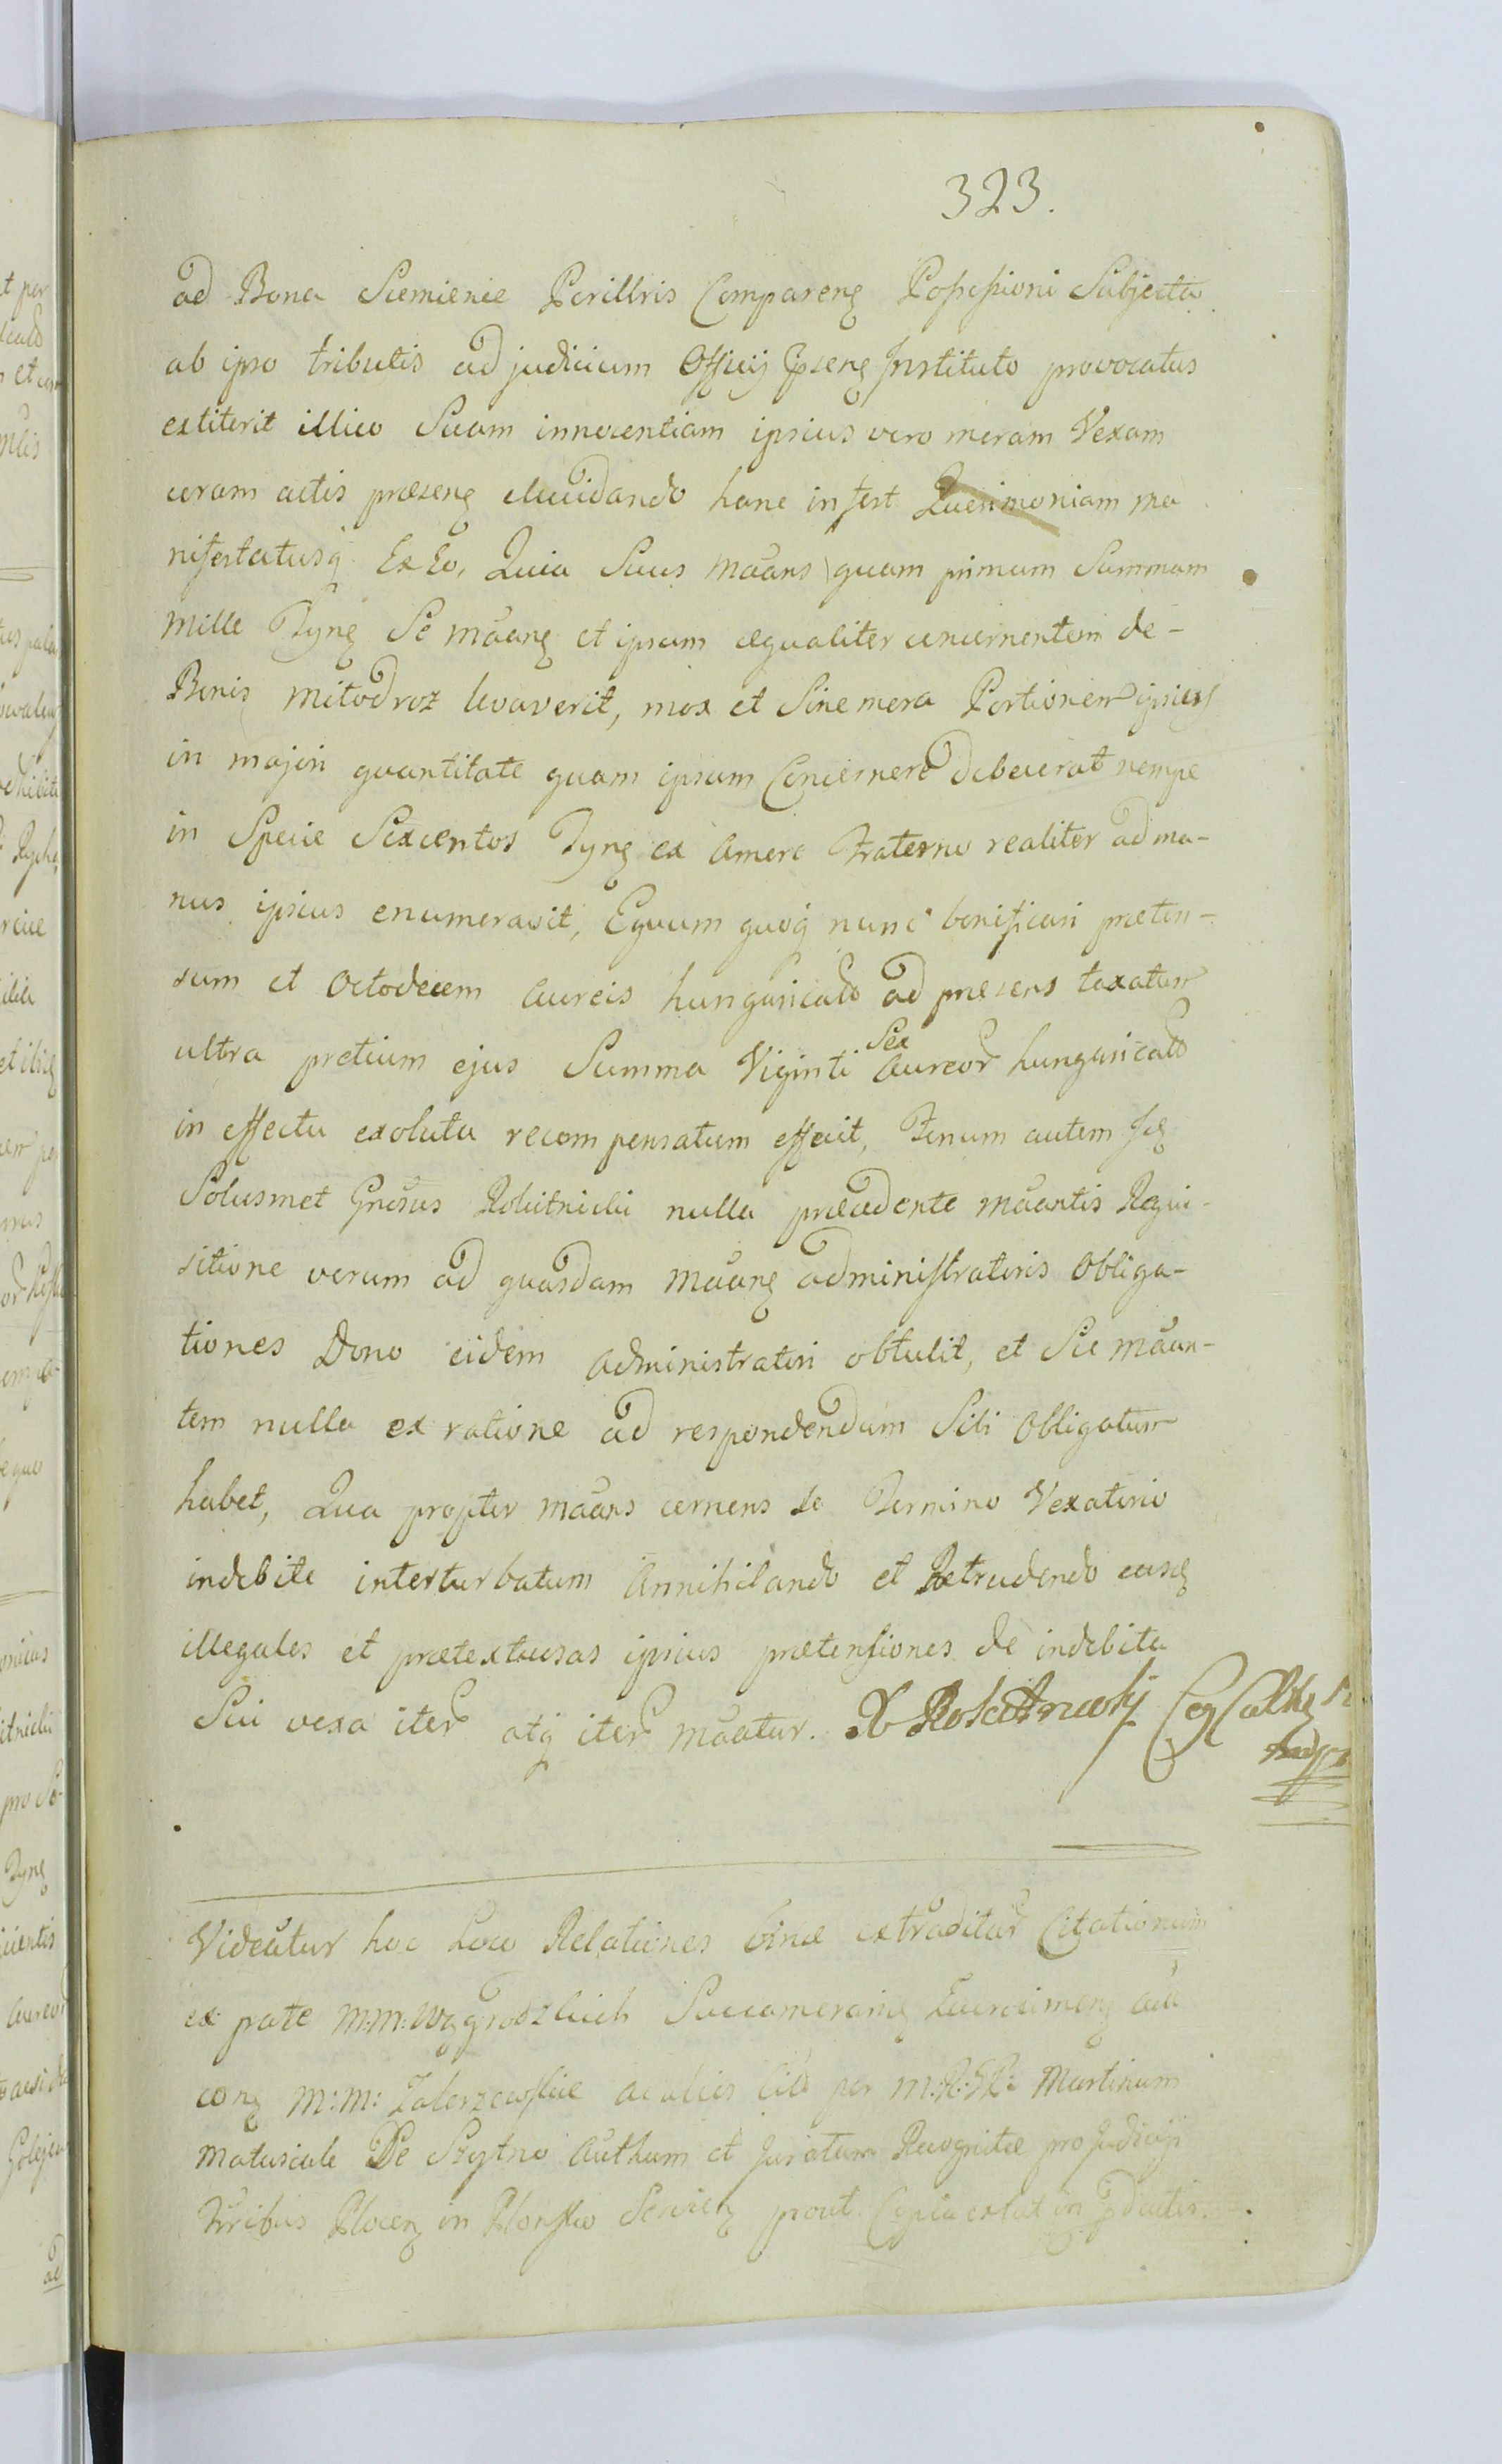 323.
ad Bona Siemienie Perillris Compareng Possessioni Subjecta
ab ipso tributis ad judicium Officij Instituto provocatus
extiterit illico Suam innocentiam ipsius vero meram Vexam
coram actis præseng elucidando hanc infert Querimoniam ma
nifestatusq Ex Eo, Quia Suus maans quam primum Summam
mille Tyng Se maang et ipsum æqualiter concernentem de-
Bonis mitodroz levaverit, mox et Sine mera Portionem ipsius
in majori quantitate quam ipsum Concernere debeuerat nempe
in Specie Sexcentos Tyng ex Amore Fraterno realiter ad ma-
nus ipsius enumeravit, Equum quoq nunc bonificari præten-
sum et Octodecem Aureis hungaricalb ad præsens taxatum
ultra pretium ejus Summa Viginti Sex Aureor hungaricalb
in effectu exoluta recompensatum effecit, Fenum autem
Solusmet Gnosus Rokitnicki nulla præcedente maantis Requi-
sitione verum ad quasdam maang administratoris Obliga-
tiones Dono eidem administratori obtulit, et Sic maan-
tem nulla ex ratione ad respondendum Sibi Obligatum
habet, Qua propter maans cernens se Termino Vexatorio
indebite interturbatum Annihilando et Retrudendo easq
illegales et prætextuosas ipsius prætensiones de indebita
Sui vexa iter atq iter maatur. X Rokitnicki
Videatur hoc Loco Relationes binæ extraditar Citationum
ex parte M:M: Succamerarius
M:M: per M: Martinum
Matusiak De Szytno Authum et Juratum Recognitæ pro Judicijs
in Plonsko prout Copia extat in